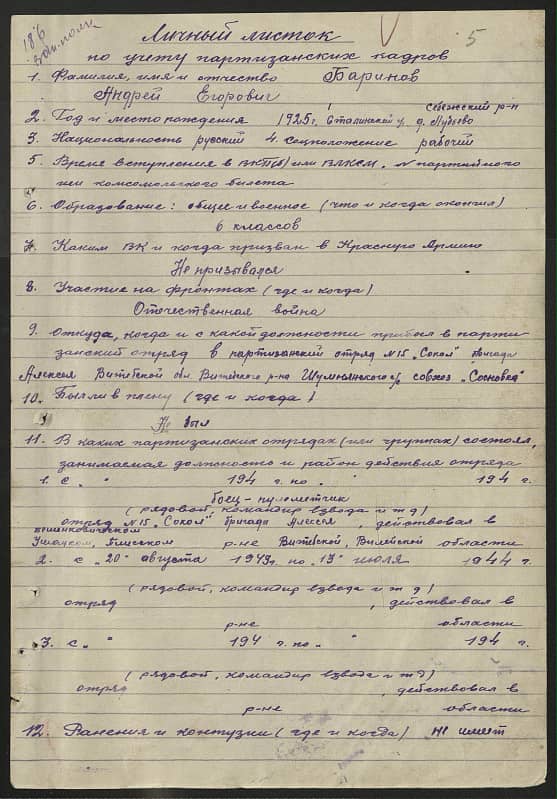 186
5
Личный листок
по учету партизанских кадров
1. Фамилия, имя и отчество Баринов
Андрей Егорович
Себежский р-н
2. Год и место рождения 1925 г. Сталинской у. д. Лубьево
3. Национальность русский 4. соцположение рабочий
5. Время вступления в ВКП(б) или ВЛКСМ. N партийного
или комсомольского билета
6. Образование: общее и военное (что и когда окончил)
6 классов
7. Каким ВК и когда призван в Красную Армию
Не призывался
8. Участие на фронтах (где и когда)
Отечественная война
9. Откуда, когда и с какой должности прибыл в парти-
занский отряд в партизанский отряд N15 „Сокол" бригады
Алексея Витебской обл. Витебского р-на Шумнянского с/с совхоз „Сосновка"
10. Был ли в плену (где и когда)
Не был
11. В каких партизанских отрядах (или группах) состоял,
занимаемая должность и район действия отряда
1. с " 194 г. по " 194 г.
боец-пулеметчик
(рядовой, командир взвода и т д)
отряд N15 „Сокол" бригады Алексея, действовал в
Бешенковичском
Ушачском, Плисском р-не Витебской, Вилейской области
2. с „20" августа 1943 г. по „13" июля 1944 г.
(рядовой, командир взвода и т д)
отряд , действовал в
р-не области
3. с „ " 194 г. по „ " 194 г.
(рядовой, командир взвода и т д)
отряд , действовал в
р-не области
12. Ранения и контузии (где и когда) не имеет